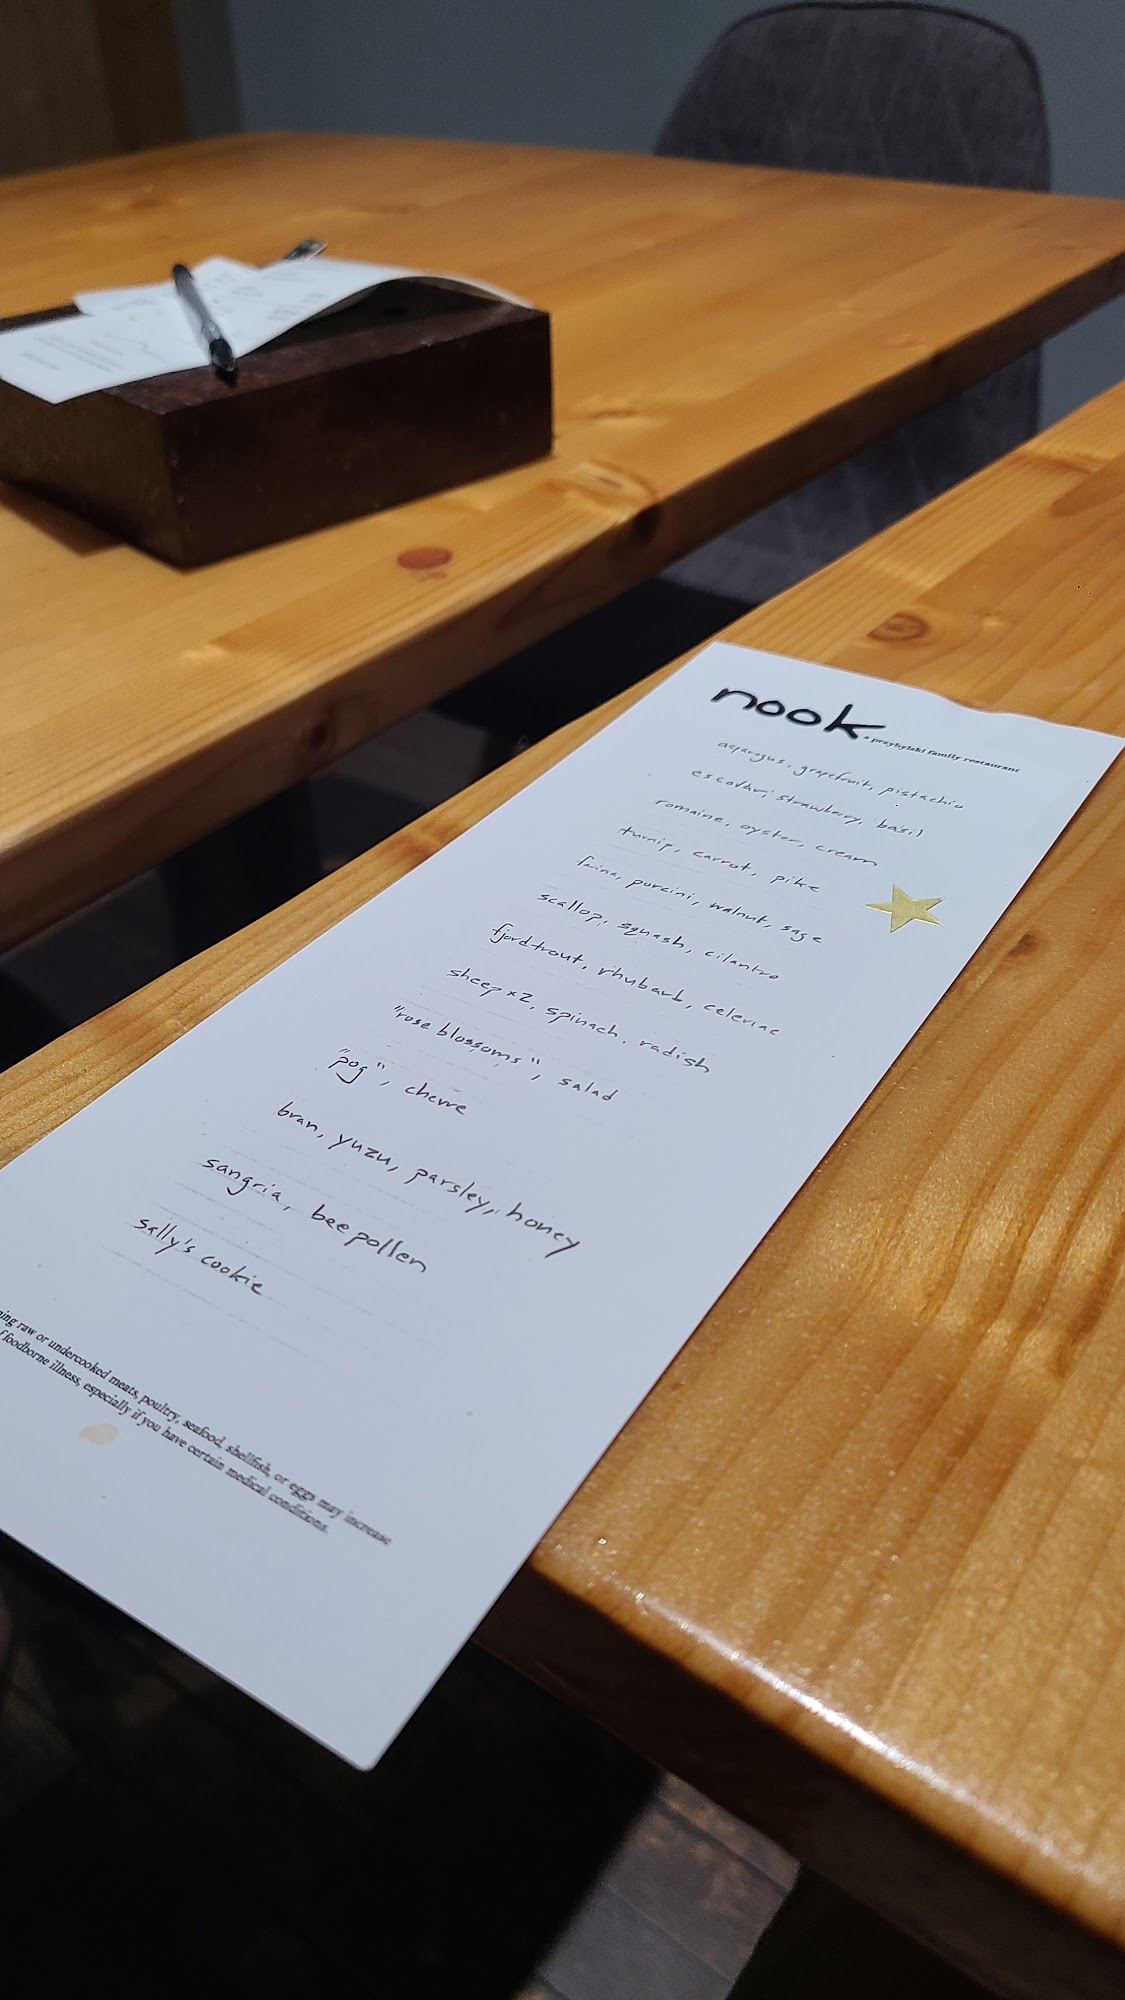 nook
a przybylski family restaurant
asparagus, grapefruit, pistachio
escolar, strawberry, basil
romaine, oyster, cream
turnip, carrot, pike
farina, porcini, walnut, sage
scallop, squash, cilantro
fjordtrout, rhubarb, celeriac
sheep x2, spinach, radish
"rose blossoms", salad
"pog", chevre
bran, yuzu, parsley, honey
sangria, bee pollen
sally's cookie
raw or undercooked meats, poultry, seafood, shellfish, or eggs may increase
foodborne illness, especially if you have certain medical conditions.